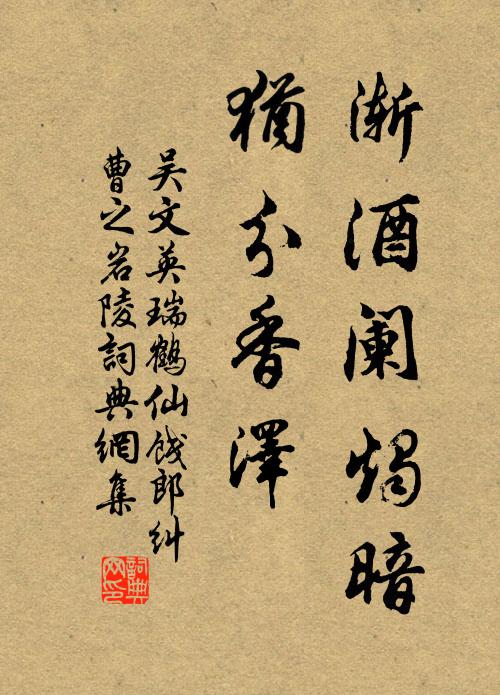 渐酒阑烛暗
犹分香泽
吴文英瑞鹤仙饯郎纠
曹之岩陵詞典網集
詞典
网印